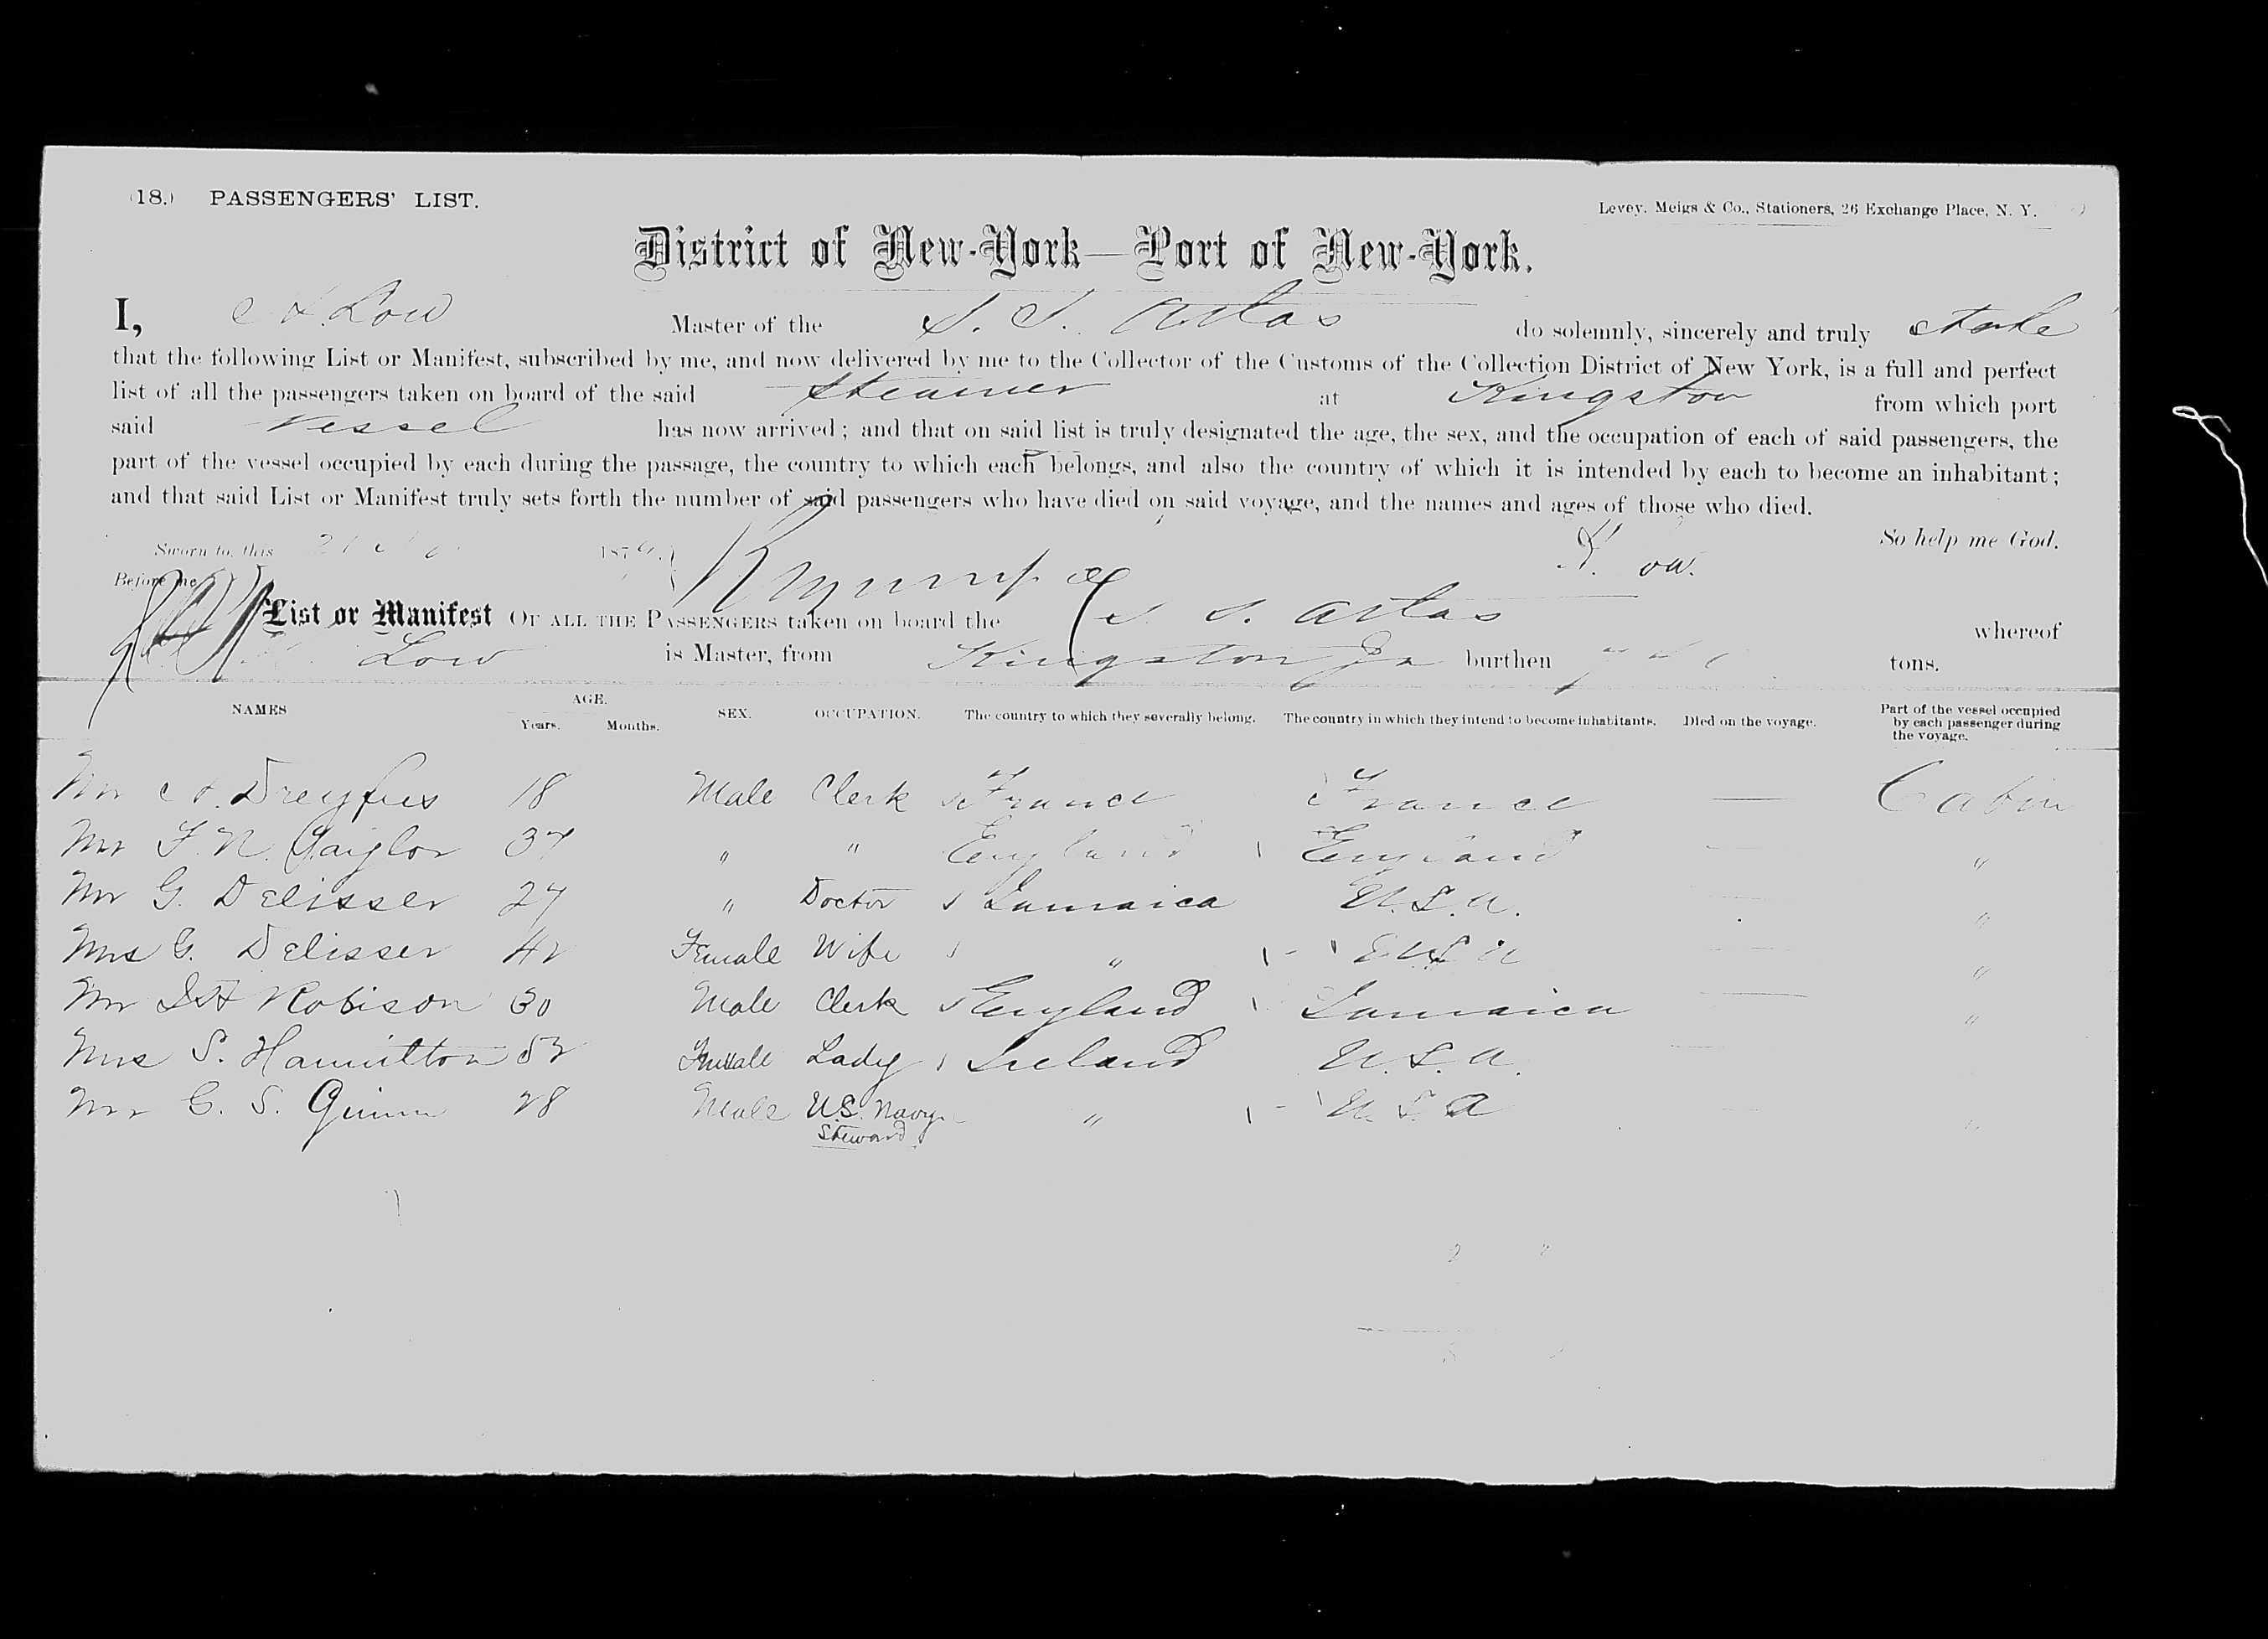 (18.) PASSENGERS' LIST.
Levey, Meigs & Co., Stationers, 26 Exchange Place, N. Y.
District of New-York—Port of New-York.
I, A. Low Master of the S. S. Atlas do solemnly, sincerely and truly state
that the following List or Manifest, subscribed by me, and now delivered by me to the Collector of the Customs of the Collection District of New York, is a full and perfect
list of all the passengers taken on board of the said Steamer at Kingston from which port
said Vessel has now arrived; and that on said list is truly designated the age, the sex, and the occupation of each of said passengers, the
part of the vessel occupied by each during the passage, the country to which each belongs, and also the country of which it is intended by each to become an inhabitant;
and that said List or Manifest truly sets forth the number of said passengers who have died on said voyage, and the names and ages of those who died.
So help me God.
Sworn to, this 21 187
Before me
List or Manifest OF ALL THE PASSENGERS taken on board the S. S. Atlas whereof
Low is Master, from Kingston Ja burthen tons.
NAMES AGE. Years. Months. SEX. OCCUPATION. The country to which they severally belong. The country in which they intend to become inhabitants. Died on the voyage. Part of the vessel occupied by each passenger during the voyage.
Mr A. Dreyfus 18 Male Clerk France France — Cabin
Mr F. N. Gaylor 37 " " England England — "
Mr G. Delisser 27 " Doctor Jamaica U.S.A. "
Mrs G. Delisser 42 Female Wife " U.S.A — "
Mr Robison 30 Male Clerk England Jamaica — "
Mrs S. Hamilton 52 Female Lady Ireland U.S.A. — "
Mr C. S. Quinn 28 Male U.S. Navy " U.S.A — "
Steward